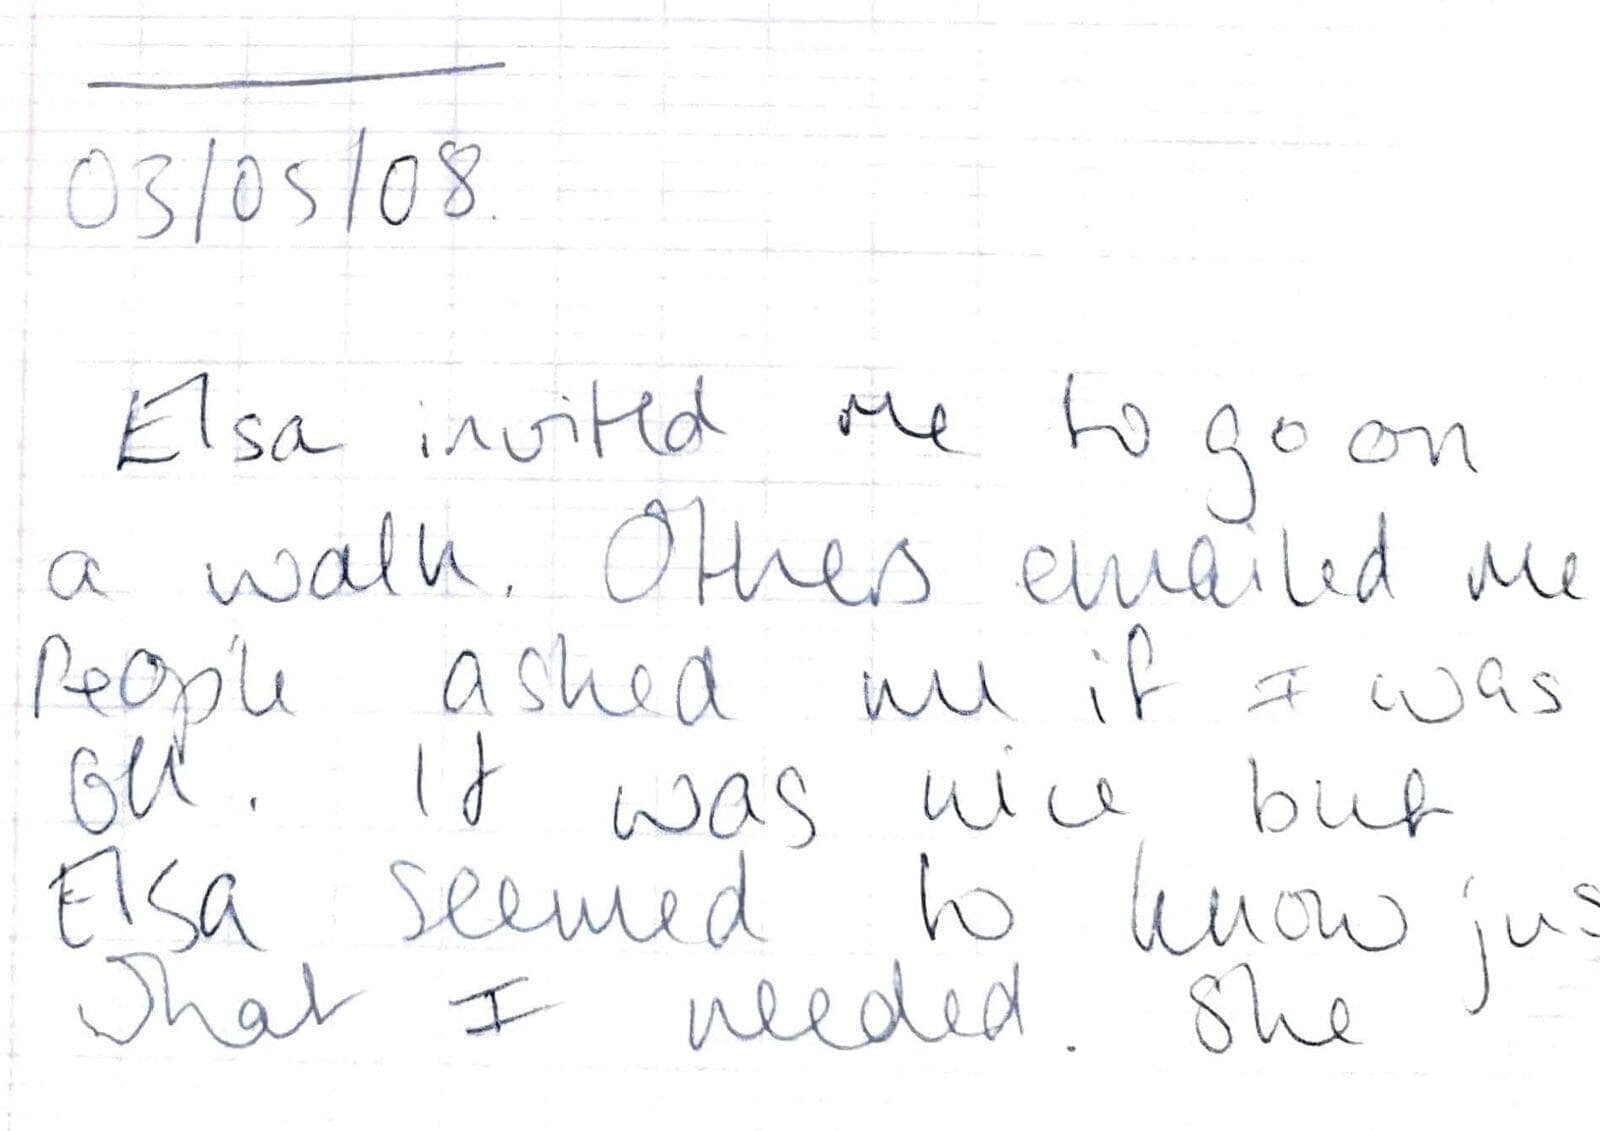 03/05/08.
Elsa invited me to go on
a walk. Others emailed me
People asked me if I was
OK. It was nice but
Elsa seemed to know jus
what I needed. She